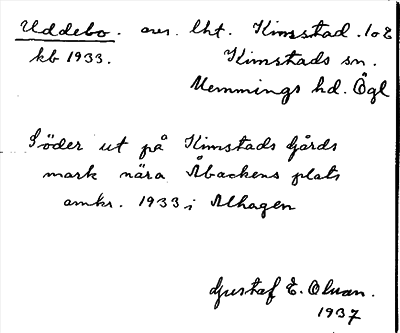 Uddebo. avs. lht. Kimstad. 1o2
kb 1933. Kimstads sn.
Memmings hd. Ögl
Söder ut på Kimstads Gårds
mark nära Åbackens plats
omkr. 1933 i Alhagen
Gustaf E. Olsson.
1937